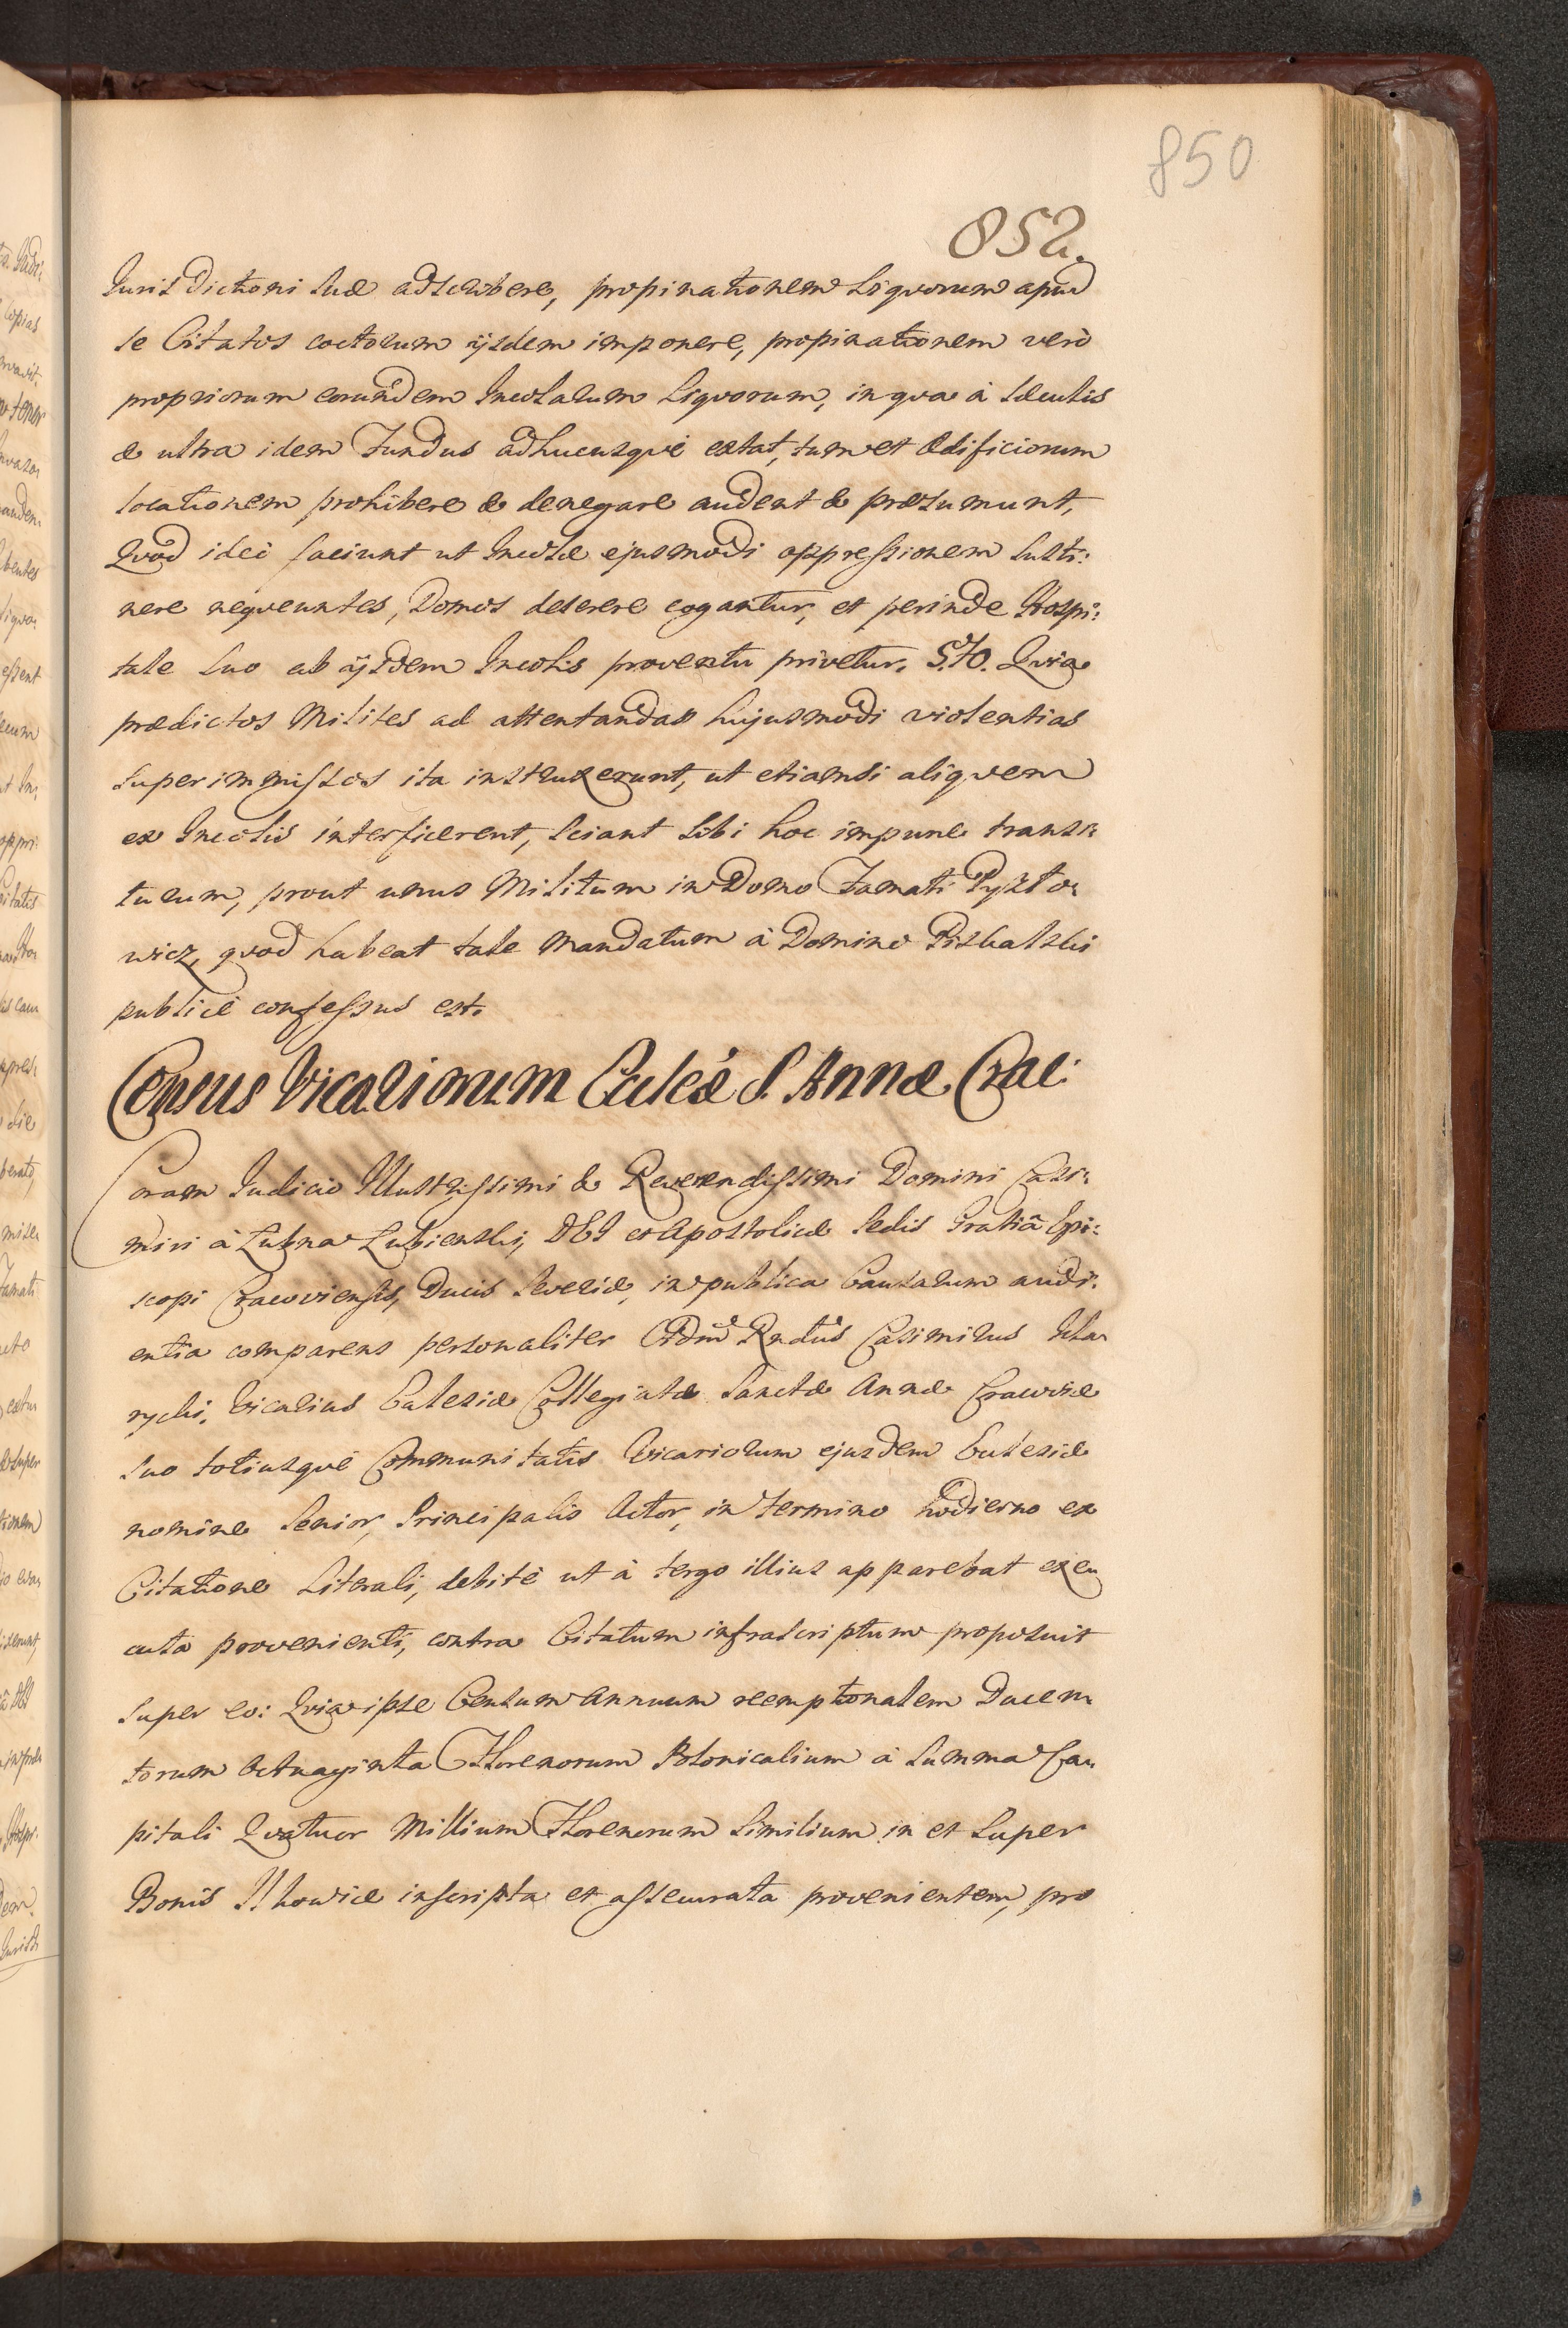 850
852.
Juris Dictioni suæ adscribere, propinationem Liqvorum apud
se Citatos coctorum ijsdem imponere, propinationem verò
propriorum eorundem Incolarum Liqvorum, in qva à sæculis
& ultra idem Fundus adhucusqvè extat, tum et Ædificiorum
locationem prohibere & denegare audent & præsumunt,
Qvòd ideò faciunt ut Incolæ ejusmodi oppressionem susti:
nere neqveuntes, Domos deserere cogantur, et perinde Hospi:
tale suo ab ijsdem Incolis proventu privetur. 5.to. Qvia
prædictos Milites ad attentandas hujusmodi violentias
superimmissos ita instruxerunt, ut etiamsi aliqvem
ex Incolis interficerent, sciant sibi hoc impune transi:
turum, prout unus Militum in Domo Famati Pyzto:
wicz, qvod habeat tale Mandatum à Domino
publicè confessus est.
Census Vicariorum Eccleæ S. Annæ Crac:
Coram Judicio Illustrissimi & Reverendissimi Domini Casi:
miri à Łubna Łubienski, DEI et Apostolicæ Sedis Gratiâ Epi:
scopi Cracoviensis, Ducis Severiæ, in publica Causarum audi:
entia comparens personaliter Admd Rndus Casimirus
rycki, Vicarius Ecclesiæ Collegiatæ Sanctæ Annæ Cracoviæ
suo totiusqvè Communitatis Vicariorum ejusdem Ecclesiæ
nomine Senior, Principalis Actor, in termino hodierno ex
Citatione Literali, debitè ut à tergo illius apparebat exe:
cuta provenienti, contra Citatum infrascriptum proposuit
super eo: Qvia ipse Censum Annuum reemptionalem Ducen:
torum Octuaginta Florenorum Polonicalium à Summa Ca:
pitali Qvatuor Millium Florenorum Similium in et super
Bonis inscripta et assecurata provenientem, pro